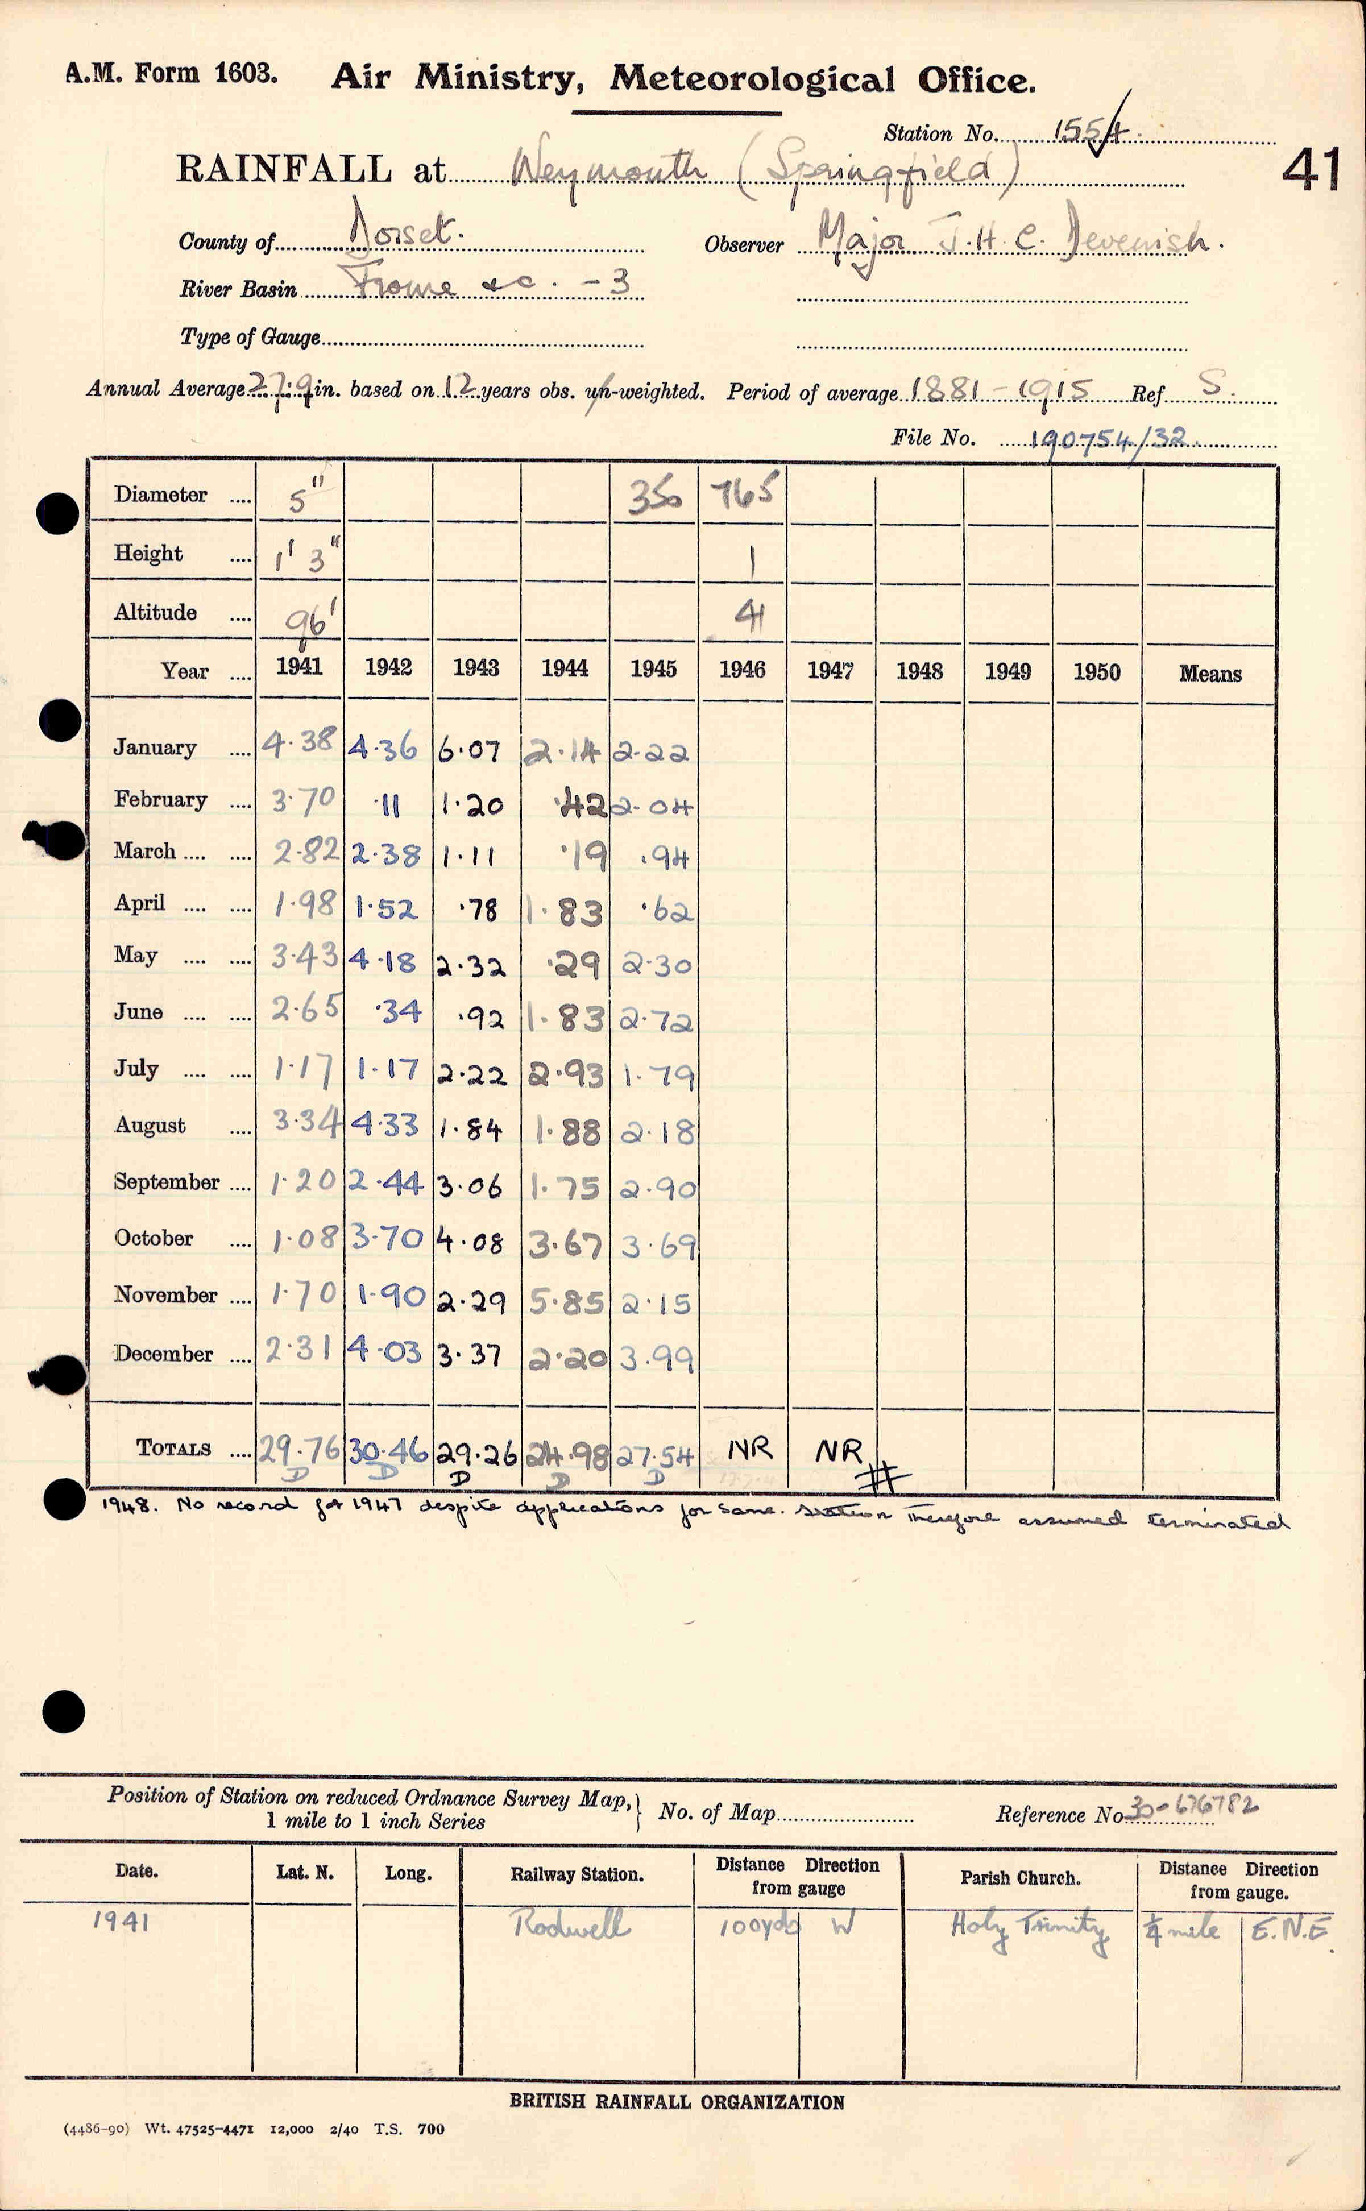 A.M. Form 1603. Air Ministry, Meteorological Office.
Station No. 1554.
41
RAINFALL at Weymouth (Springfield)
County of Dorset. Observer Major J.H.C. Devenish.
River Basin Frome &c. - 3
Type of Gauge
Annual Average 27.9 in. based on 12 years obs. un-weighted. Period of average 1881-1915 Ref. S.
File No. 190754/32
Diameter .... 5" 350 765
Height .... 1' 3" 1
Altitude .... 96' 41
Year .... 1941 1942 1943 1944 1945 1946 1947 1948 1949 1950 Means
January .... 4.38 4.36 6.07 2.14 2.22
February .... 3.70 .11 1.20 .42 2.04
March .... .... 2.82 2.38 1.11 .19 .94
April .... .... 1.98 1.52 .78 1.83 .62
May .... .... 3.43 4.18 2.32 .29 2.30
June .... .... 2.65 .34 .92 1.83 2.72
July .... .... 1.17 1.17 2.22 2.93 1.79
August .... 3.34 4.33 1.84 1.88 2.18
September .... 1.20 2.44 3.06 1.75 2.90
October .... 1.08 3.70 4.08 3.67 3.69
November .... 1.70 1.90 2.29 5.85 2.15
December .... 2.31 4.03 3.37 2.20 3.99
TOTALS .... 29.76 30.46 29.26 24.98 27.54 NR NR
D D D D D #
1948. No record for 1947 despite applications for same. Station therefore assumed terminated
Position of Station on reduced Ordnance Survey Map, } No. of Map Reference No. 30-676782
1 mile to 1 inch Series
Date. Lat. N. Long. Railway Station. Distance Direction from gauge Parish Church. Distance Direction from gauge.
1941 Rodwell 100yds W Holy Trinity ¼ mile E.N.E.
BRITISH RAINFALL ORGANIZATION
(4486-90) Wt. 47525-4471 12,000 2/40 T.S. 700